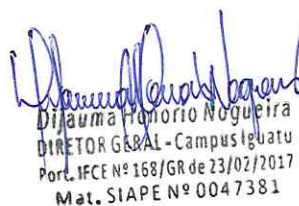 Dijauma Honório Nogueira
DIRETOR GERAL - Campus Iguatu
Port. IFCE Nº 168/GR de 23/02/2017
Mat. SIAPE Nº 0047381